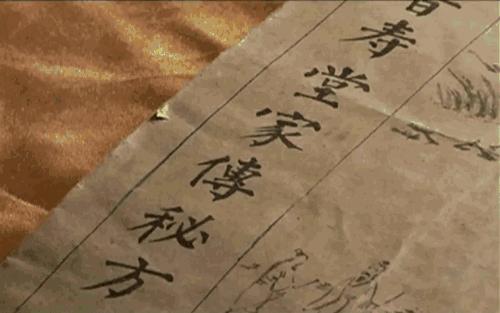 寿堂家傳秘方